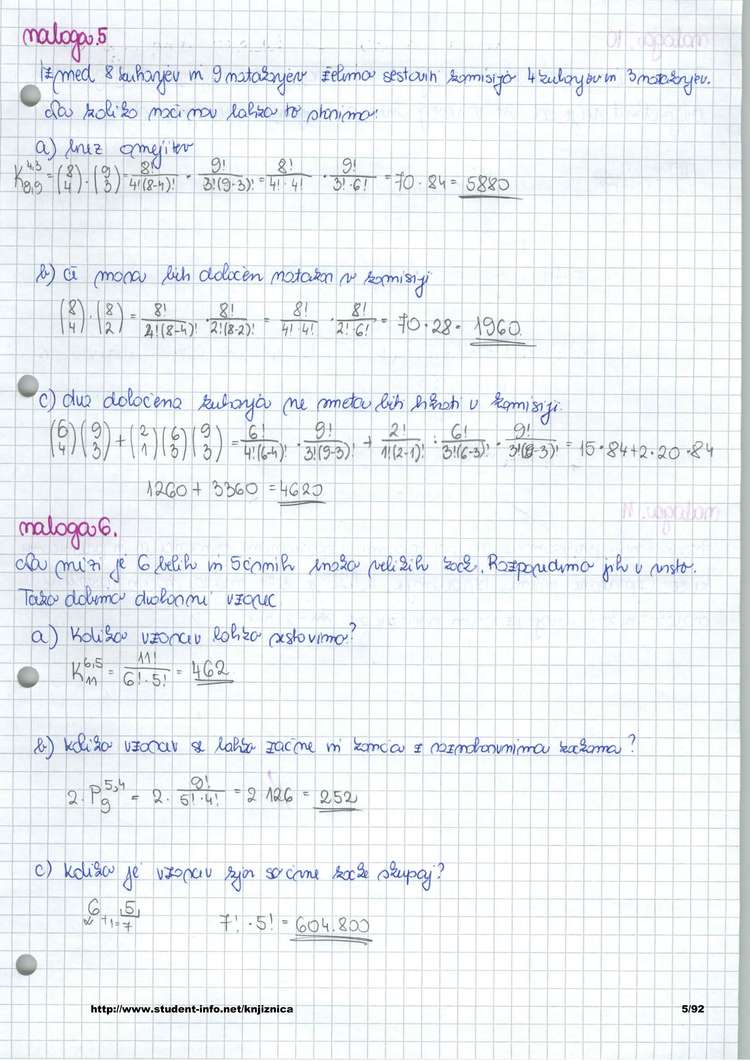 naloga 5
Izmed 8 kuharjev in 9 natakarjev želimo sestaviti komisijo 4 kuharjev in 3 natakarjev.
Na koliko načinov lahko to storimo:
a) brez omejitev
K_{8,9}^{4,3} = (8 4) · (9 3) = 8!/4!(8-4)! · 9!/3!(9-3)! = 8!/4!·4! · 9!/3!·6! = 70 · 84 = 5880
b) če mora biti določen natakar v komisiji
(8 4) · (8 2) = 8!/4!(8-4)! · 8!/2!(8-2)! = 8!/4!·4! · 8!/2!·6! = 70 · 28 = 1960
c) dva določena kuharja ne smeta biti hkrati v komisiji.
(6 4)(9 3) + (2 1)(6 3)(9 3) = 6!/4!(6-4)! · 9!/3!(9-3)! + 2!/1!(2-1)! · 6!/3!(6-3)! · 9!/3!(9-3)! = 15 · 84 + 2 · 20 · 84
1260 + 3360 = 4620
naloga 6.
Na mizi je 6 belih in 5 črnih enako velikih kock. Razporedimo jih v vrsto.
Tako dobimo dvobarvni vzorec
a) Koliko vzorcev lahko sestavimo?
K_{11}^{6,5} = 11!/6!·5! = 462
b) koliko vzorcev se lahko začne in konča z raznobarvnima kockama?
2 · P_9^{5,4} = 2 · 9!/5!·4! = 2 126 = 252
c) koliko je vzorcev kjer so črne kocke skupaj?
6 5
+1=7 7! · 5! = 604.800
http://www.student-info.net/knjiznica 5/92